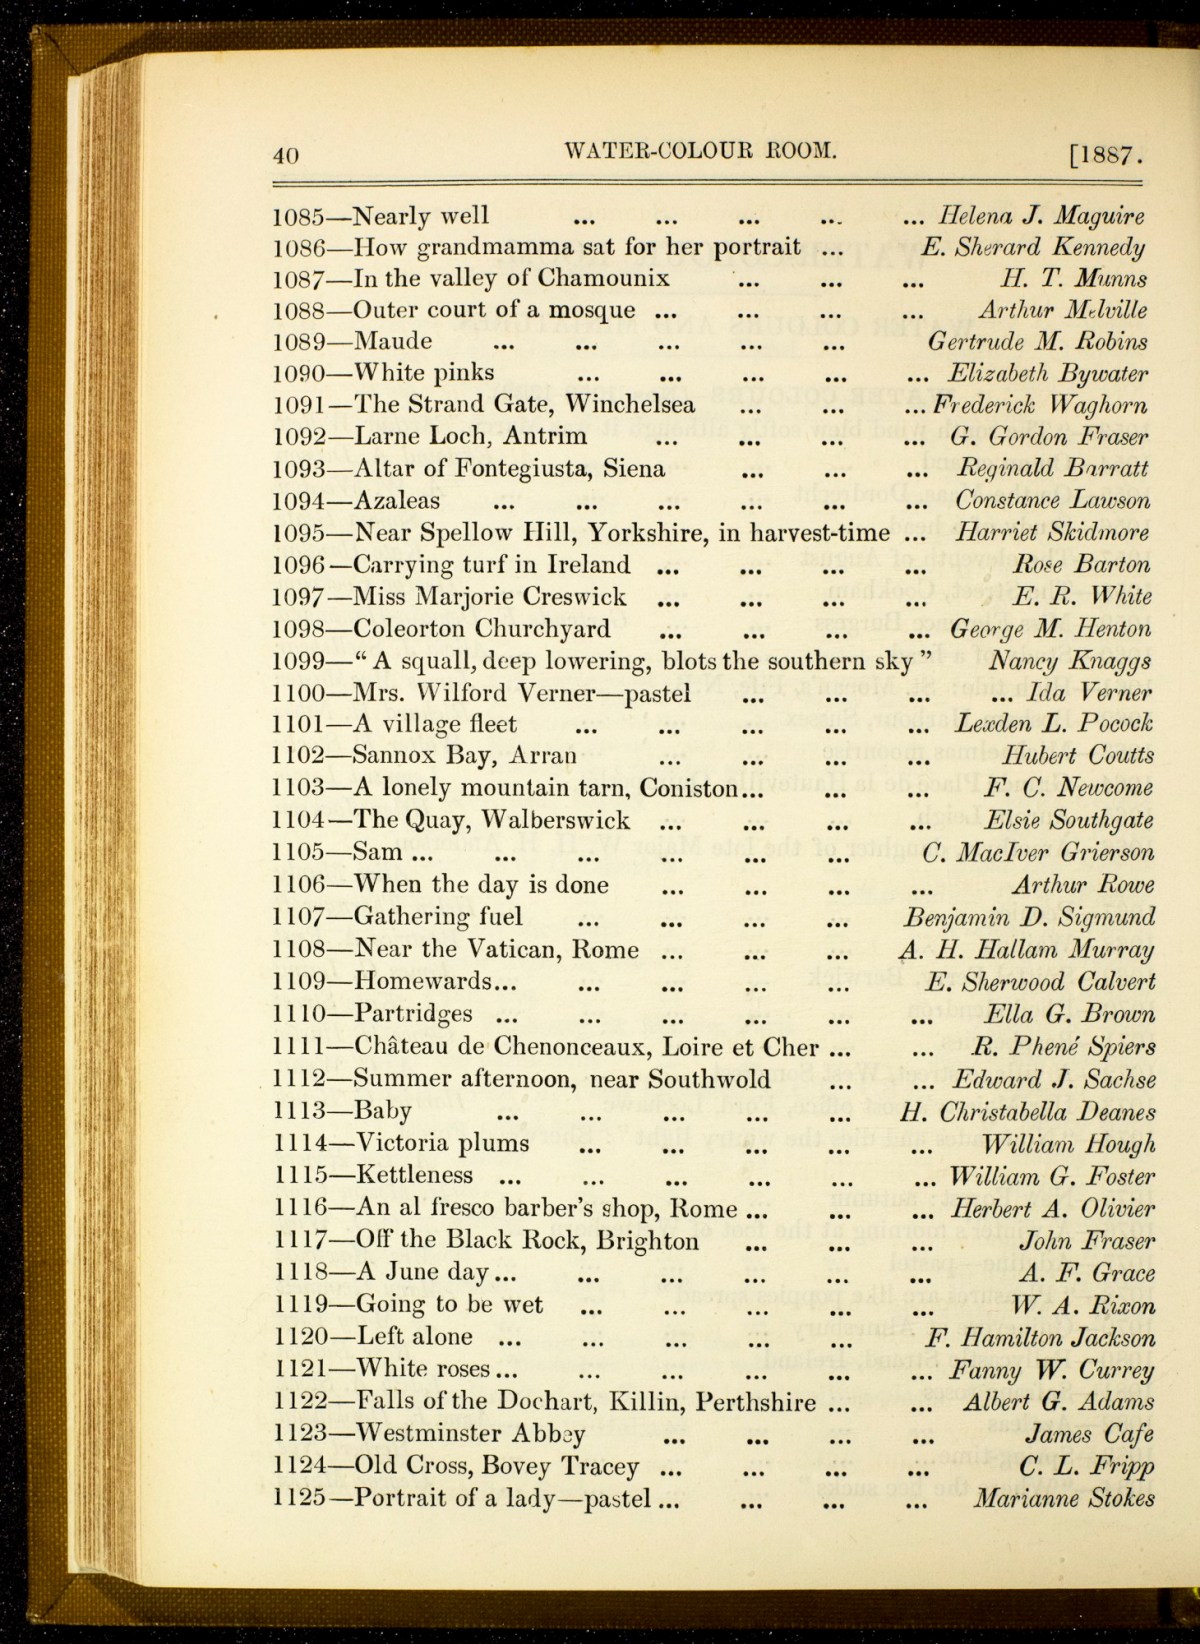 40 WATER-COLOUR ROOM. [1887.
1085—Nearly well ... ... ... ... ... Helena J. Maguire
1086—How grandmamma sat for her portrait ... E. Sherard Kennedy
1087—In the valley of Chamounix ... ... ... H. T. Munns
1088—Outer court of a mosque ... ... ... ... Arthur Melville
1089—Maude ... ... ... ... ... Gertrude M. Robins
1090—White pinks ... ... ... ... ... Elizabeth Bywater
1091—The Strand Gate, Winchelsea ... ... ... Frederick Waghorn
1092—Larne Loch, Antrim ... ... ... ... G. Gordon Fraser
1093—Altar of Fontegiusta, Siena ... ... ... Reginald Barratt
1094—Azaleas ... ... ... ... ... ... Constance Lawson
1095—Near Spellow Hill, Yorkshire, in harvest-time ... Harriet Skidmore
1096—Carrying turf in Ireland ... ... ... ... Rose Barton
1097—Miss Marjorie Creswick ... ... ... ... E. R. White
1098—Coleorton Churchyard ... ... ... ... George M. Henton
1099—“ A squall, deep lowering, blots the southern sky ” Nancy Knaggs
1100—Mrs. Wilford Verner—pastel ... ... ... ... Ida Verner
1101—A village fleet ... ... ... ... ... Lexden L. Pocock
1102—Sannox Bay, Arran ... ... ... ... Hubert Coutts
1103—A lonely mountain tarn, Coniston... ... ... F. C. Newcome
1104—The Quay, Walberswick ... ... ... ... Elsie Southgate
1105—Sam ... ... ... ... ... ... C. MacIver Grierson
1106—When the day is done ... ... ... ... Arthur Rowe
1107—Gathering fuel ... ... ... ... Benjamin D. Sigmund
1108—Near the Vatican, Rome ... ... ... A. H. Hallam Murray
1109—Homewards... ... ... ... ... E. Sherwood Calvert
1110—Partridges ... ... ... ... ... ... Ella G. Brown
1111—Château de Chenonceaux, Loire et Cher ... ... R. Phené Spiers
1112—Summer afternoon, near Southwold ... ... Edward J. Sachse
1113—Baby ... ... ... ... ... H. Christabella Deanes
1114—Victoria plums ... ... ... ... ... William Hough
1115—Kettleness ... ... ... ... ... ... William G. Foster
1116—An al fresco barber’s shop, Rome ... ... ... Herbert A. Olivier
1117—Off the Black Rock, Brighton ... ... ... John Fraser
1118—A June day... ... ... ... ... ... A. F. Grace
1119—Going to be wet ... ... ... ... ... W. A. Rixon
1120—Left alone ... ... ... ... ... F. Hamilton Jackson
1121—White roses... ... ... ... ... ... Fanny W. Currey
1122—Falls of the Dochart, Killin, Perthshire ... ... Albert G. Adams
1123—Westminster Abbey ... ... ... ... James Cafe
1124—Old Cross, Bovey Tracey ... ... ... ... C. L. Fripp
1125—Portrait of a lady—pastel ... ... ... ... Marianne Stokes